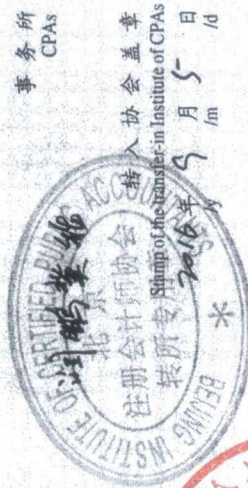 事务所
CPAs
转入协会盖章
Stamp of the transfer-in Institute of CPAs
2016年9月5日
/y /m /d
BEIJING INSTITUTE OF CERTIFIED PUBLIC ACCOUNTANTS
北京
注册会计师协会
转所专用